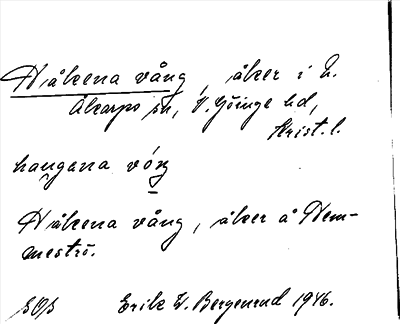 Håkena vång, åker i N.
Åkarps sn, V. Göinge hd,
Krist. l.
hangena vóŋ
Håkena vång, åker å Hem-
meströ.
SOS Erik W. Bergenrud 1946.